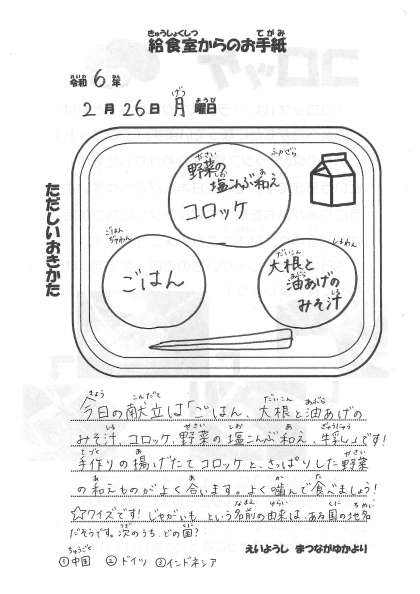 給食室からのお手紙
令和 6 年
2 月 26 日 月 曜日
ただしいおきかた
野菜の
塩こんぶ和え
コロッケ
ふかざら
ごはん
ごはん
大根と
油あげの
みそ汁
しるわん
今日の献立は「ごはん、大根と油あげの
みそ汁、コロッケ、野菜の塩こんぶ和え、牛乳」です!
手作りの揚げたてコロッケと、さっぱりした野菜
の和えものがよく合います。よく噛んで食べましょう!
☆クイズです!じゃがいも という名前の由来は、ある国の地名
だそうです。次のうち、どの国?
①中国 ②ドイツ ③インドネシア
えいようし まつながゆかより